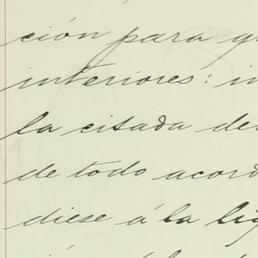 ción para q
interiores: in
la citada de
de todo acord
diese á la lig